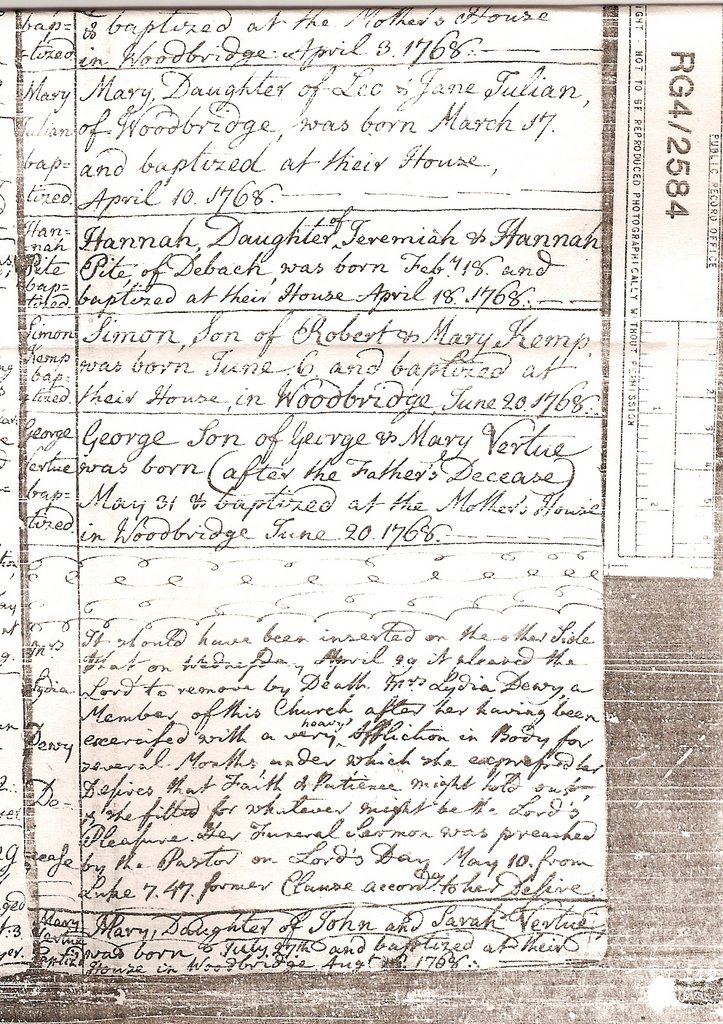 bap= & baptized at the Mother's House
=tized in Woodbridge April 3. 1768.
Mary Mary, Daughter of Leo & Jane Julian,
Julian of Woodbridge, was born March 17.
bap= and baptized at their House,
tized. April 10. 1768.
Han= nah Hannah, Daughter of Jeremiah & Hannah
Pite Pite of Debach, was born Feb.ry 18. and
bap= tized. baptized at their House April 18. 1768.
Simon Simon, Son of Robert & Mary Kemp,
Kemp was born June 6, and baptized at
bap= tized. their House, in Woodbridge June 20. 1768.
George George Son of George & Mary Vertue
Vertue was born (after the Father's Decease)
bap= May 31 & baptized at the Mother's House
tized in Woodbridge June 20. 1768.
Mrs It should have been inserted on the other Side
that on Wednesday April 29 it pleased the
Lydia Lord to remove by Death Mrs Lydia Dewy, a
Member of this Church after her having been
Dewy excercised with a very heavy Affliction in Body for
several Months under which she expressed her
De= Desires that Faith & Patience might hold out
& she fitted for whatever might be the Lord's
Pleasure. Her Funeral Sermon was preached
cease by the Pastor on Lord's Day May 10. from
Luke 7. 47. former Clause accord.g to her Desire.
Mary Mary, Daughter of John and Sarah Vertue
Vertue was born July 27th and baptized at their
baptizd House in Woodbridge Augt 1768.
RG4/2584
PUBLIC RECORD OFFICE
NOT TO BE REPRODUCED PHOTOGRAPHICALLY WITHOUT PERMISSION